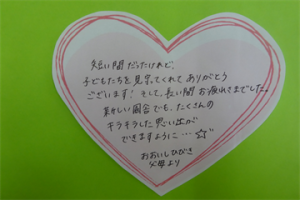 短い間だったけれど、
子どもたちを見守ってくれてありがとう
ございます！そして、長い間お疲れさまでした。
新しい園舎でも、たくさんの
キラキラした思い出が
できますように…☆
おおいしひびき
父母より